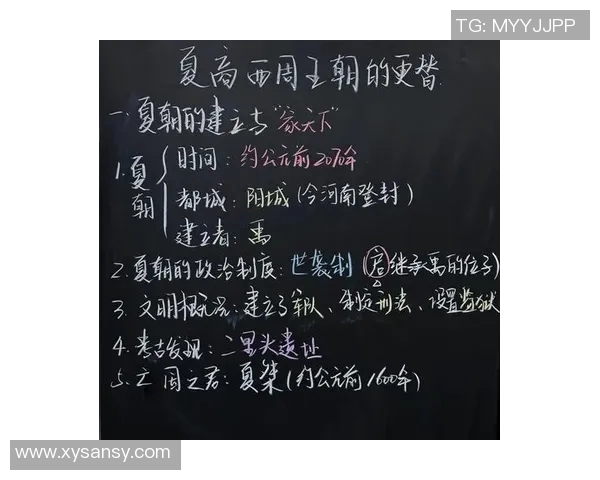 TG: MYYJJPP
夏商西周王朝的更替
一、夏朝的建立与"家天下"
1.夏朝
时间：约公元前2070年
都城：阳城(今河南登封)
建立者：禹
2.夏朝的政治制度：世袭制(启继承禹的位子)
3.文明概况：建立了军队、制定刑法、设置监狱
4.考古发现：二里头遗址
5.亡国之君：夏桀(约公元前1600年)
www.xysansy.com